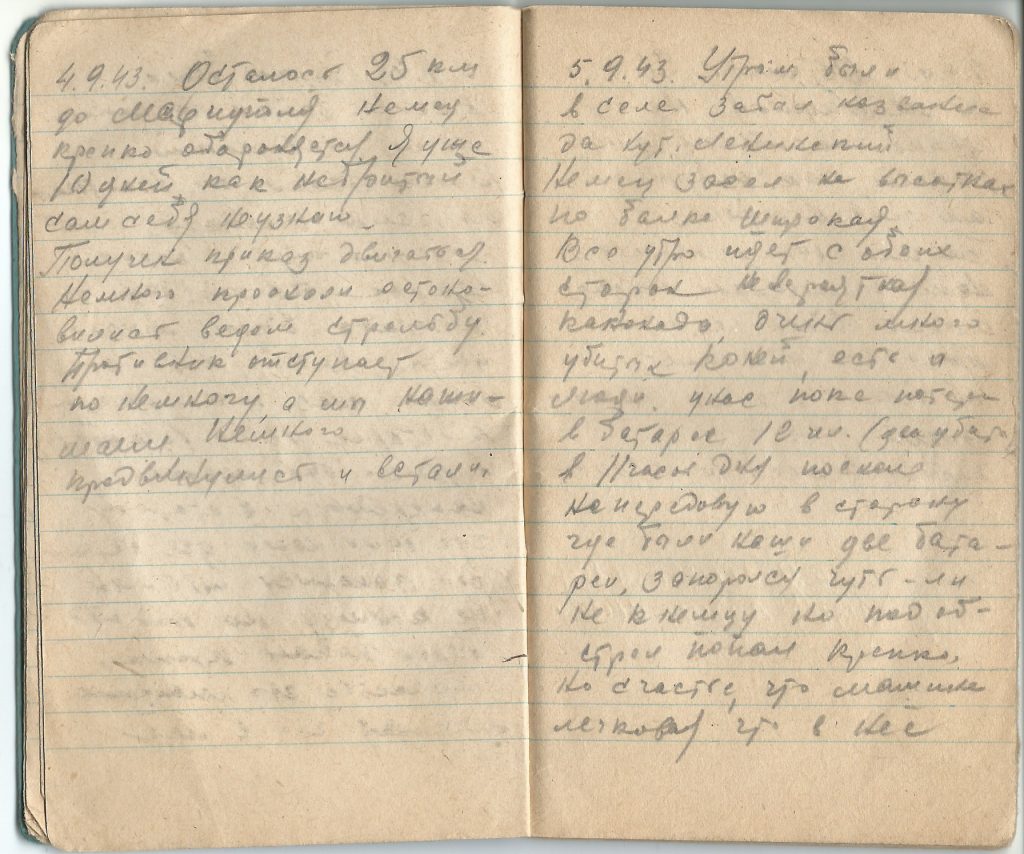 4.9.43. Осталось 25 км
до Мариуполя Немец
крепко обороняется, Я уще
10 дней как небритый
сам себя неузнаю
Получен приказ двигаться.
Немного проехали остано-
вились ведом стрельбу.
Противник отступает
по немногу, а мы нажи-
маем Немного
продвинулись и встали.
5.9.43. Утром были
в селе забыл название
да хут. Ленинский
Немец засел на высотках
по балке Широкая
Все утро идет с обоих
сторон невероятная
канонада, очень много
убитых коней, есть и
люди, у нас пока потери
в батарее 12 чел. (два убито)
в 11 часов дня поехали
на передовую в сторону
где были наши две бата-
реи, запоролся чуть-ли
не к немцу но под об-
стрел попал крепко,
но счастье, что машина
легковая, что в неё